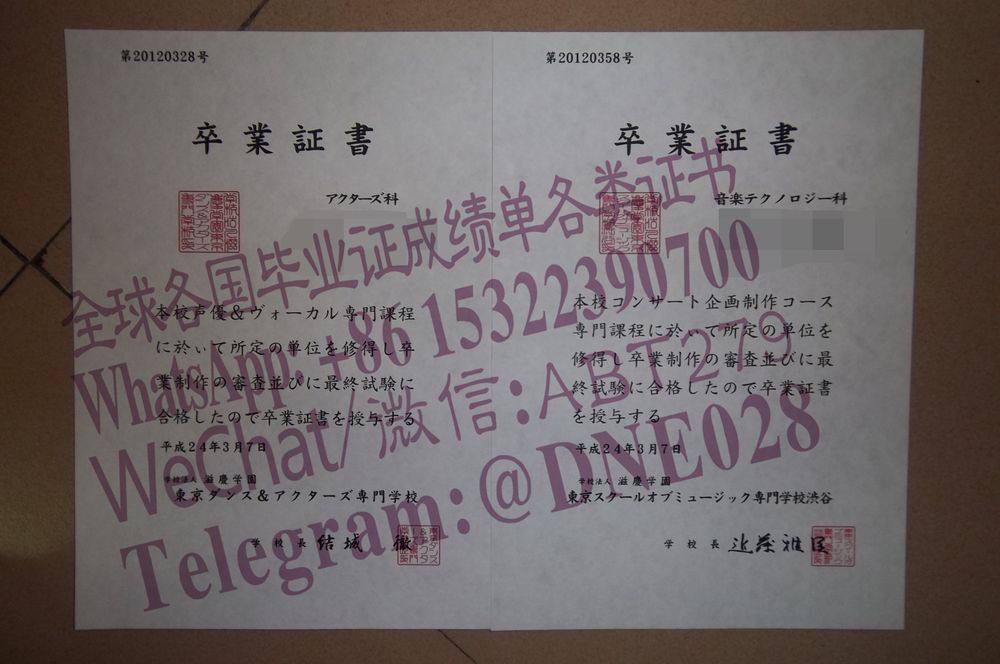 第20120328号
卒業証書
アクターズ科
本校声優&ヴォーカル専門課程
に於いて所定の単位を修得し卒
業制作の審査並びに最終試験に
合格したので卒業証書を授与する
平成24年3月7日
学校法人 滋慶学園
東京ダンス&アクターズ専門学校
学校長 結城 徹
第20120358号
卒業証書
音楽テクノロジー科
本校コンサート企画制作コース
専門課程に於いて所定の単位を
修得し卒業制作の審査並びに最
終試験に合格したので卒業証書
を授与する
平成24年3月7日
学校法人 滋慶学園
東京スクールオブミュージック専門学校渋谷
学校長
全球各国毕业证成绩单各类证书
WhatsApp: +86 15322390700
WeChat/微信: ABT279
Telegram: @DNE028